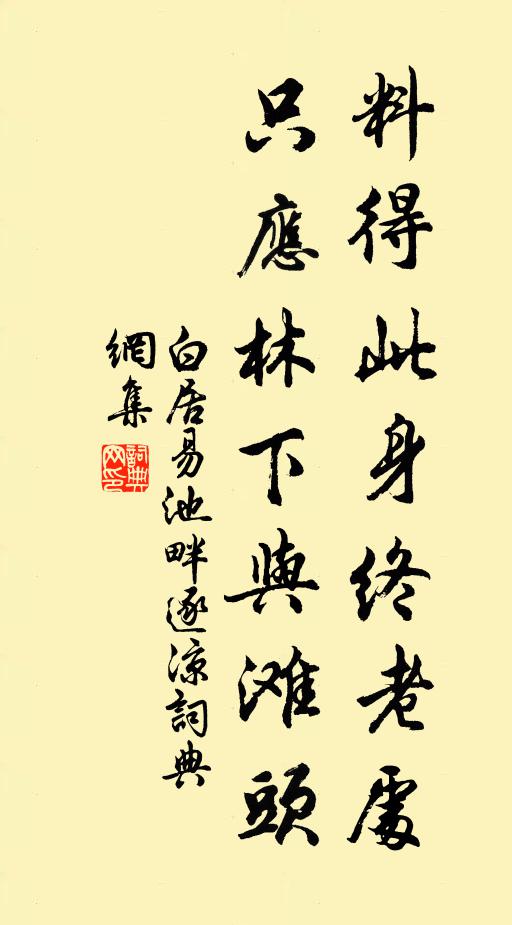 料得此身終老處
只應林下與滩頭
白居易池畔逐涼詞典
網集
詞典
网印